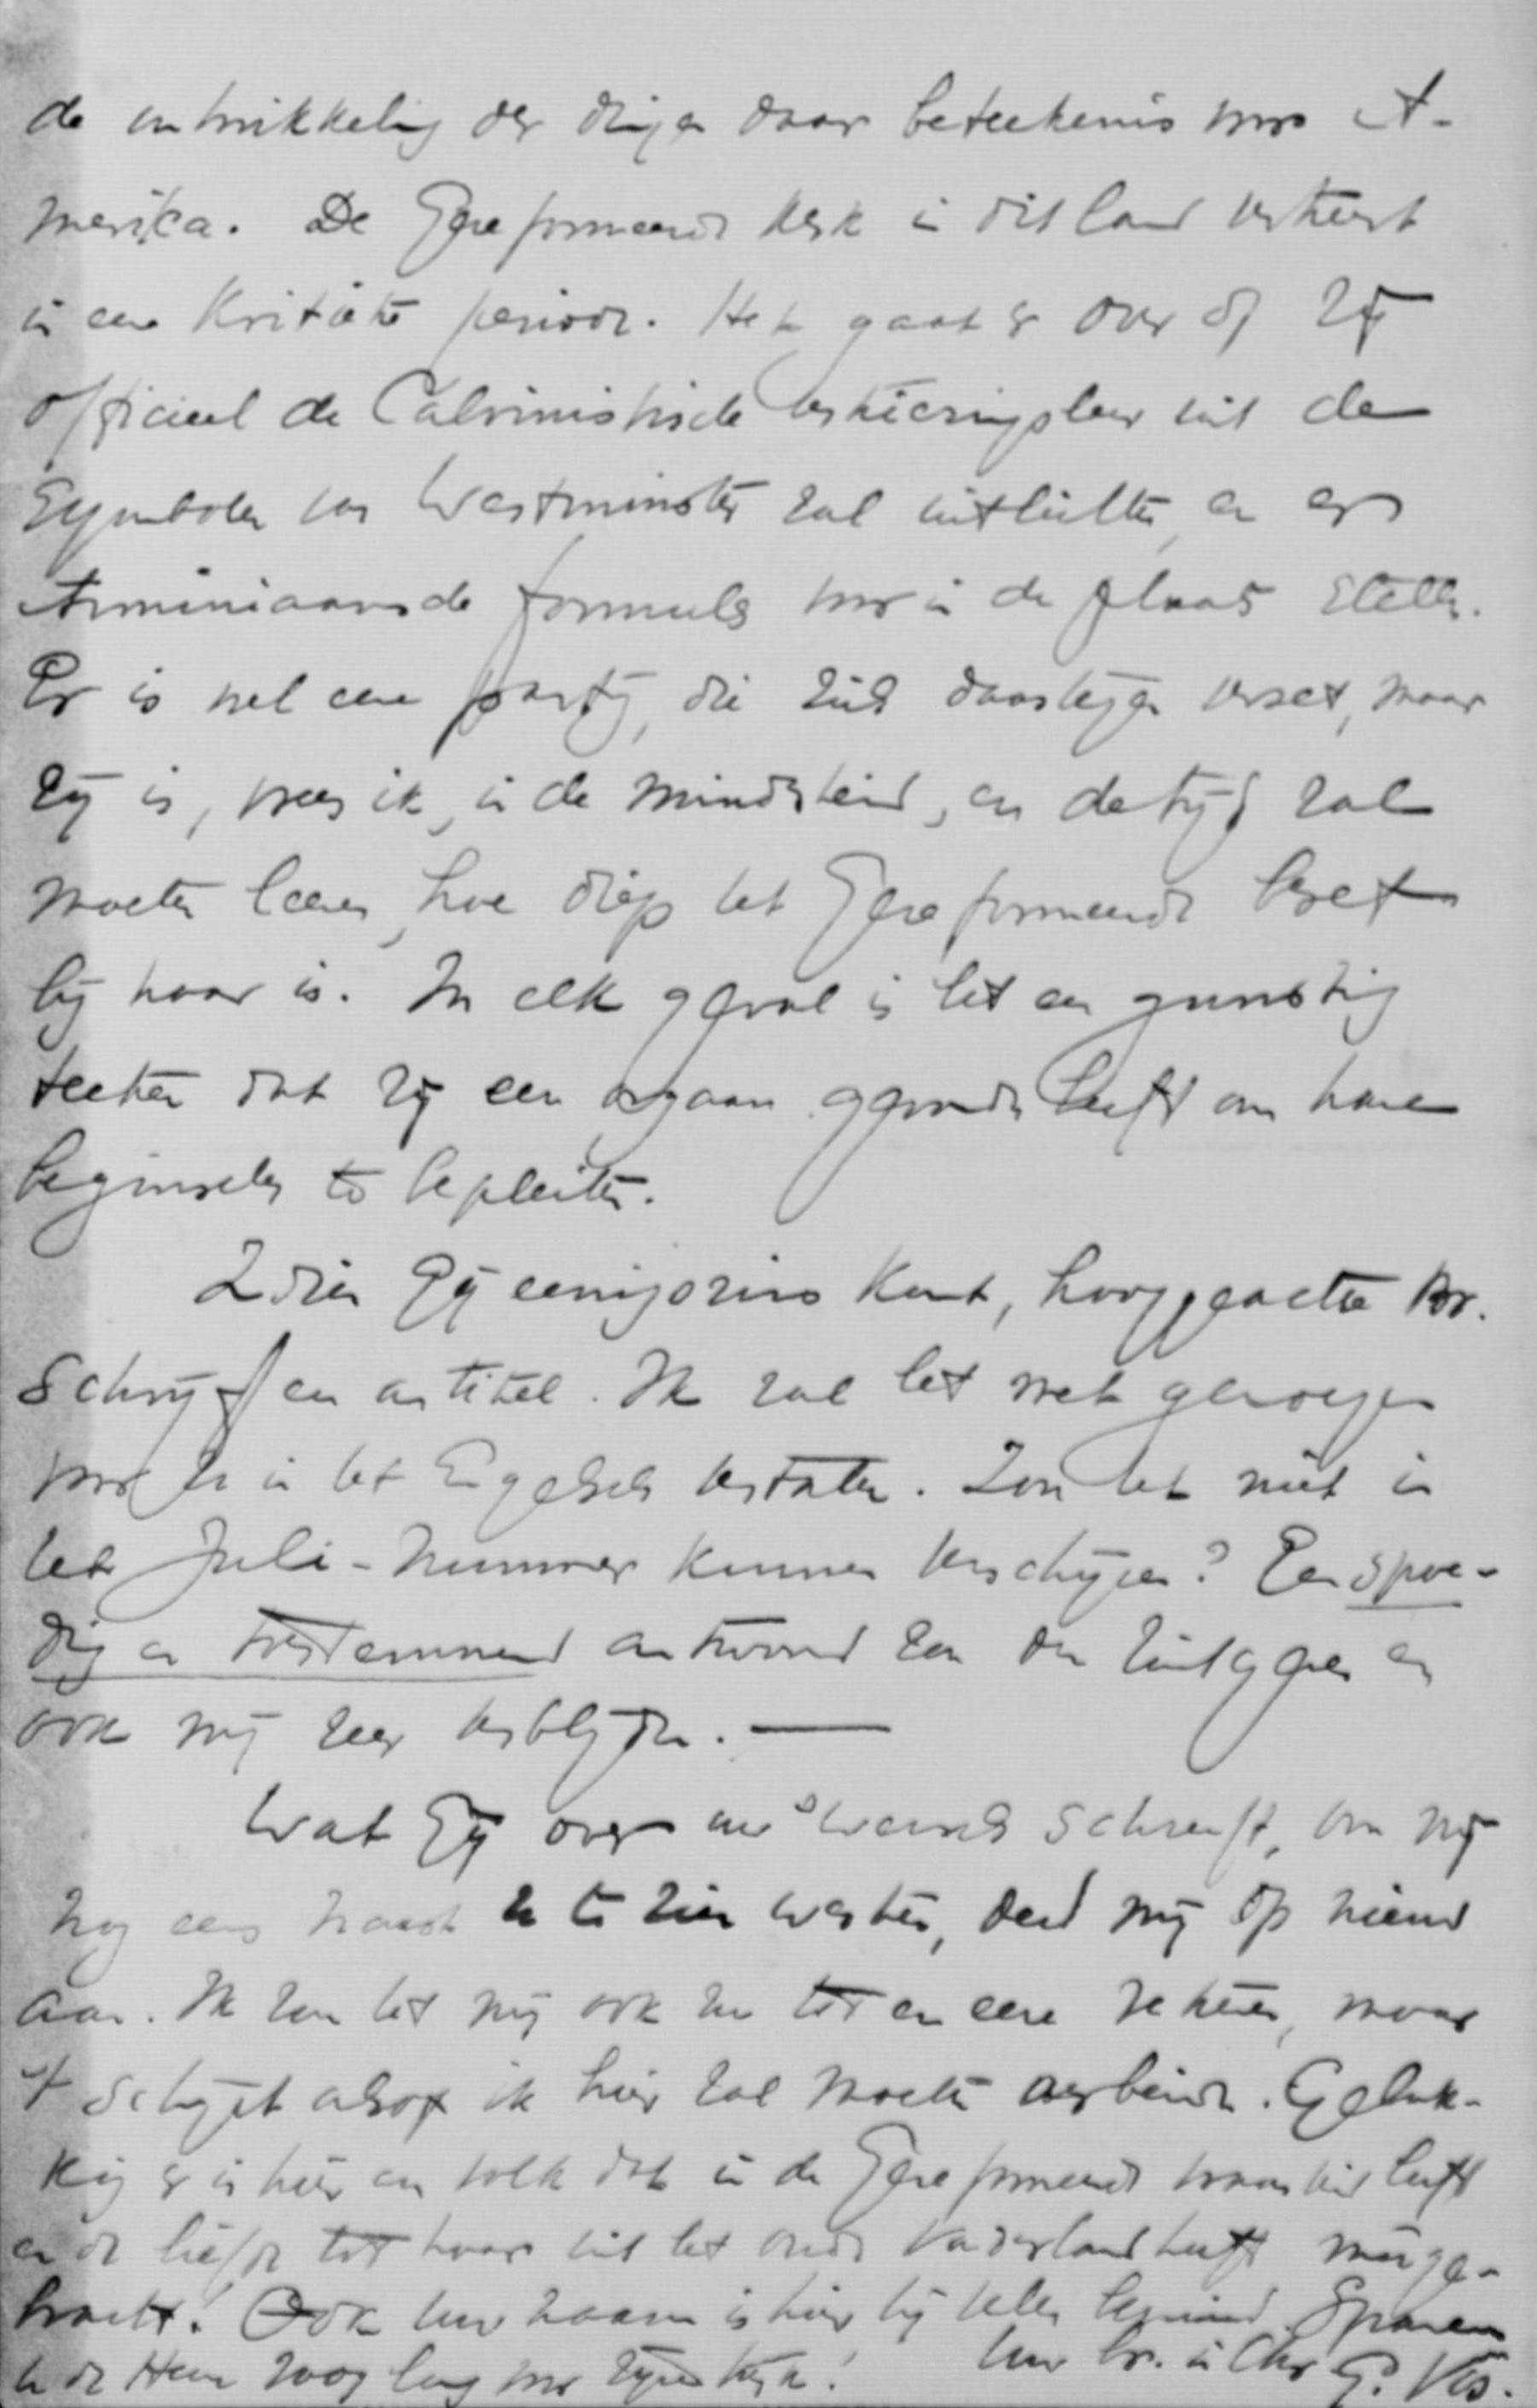 de ontwikkeling der dingen daar beteekenis voor A-
merika. De Gereformeerde Kerk in dit land verkeert
in eene Kritieke periode. Het gaat er over of zij
officieel de Calvinistische verkiezingsleer uit de
Symbolen van Westminster zal uitlichten, en een
Arminiaansche formule voor in de plaats stellen.
Er is wel eene partij, die zich daartegen verzet, maar
zij is, vrees ik, in de minderheid, en de tijd zal
moeten leeren, hoe diep het Gereformeerde besef
bij haar is. In elk geval is het een gunstig
teeken dat zij een orgaan gegrond heeft om hare
beginselen te bepleiten.
Indien Gij eenigszins kunt, hooggeachte Br.
schrijf een artikel. Ik zal het met genoegen
voor U in het Engelsch vertalen. Zou het niet in
het Juli-nummer kunnen verschijnen? Een spoe-
dig en toestemmend antwoord zou den uitgever en
ook mij zeer verblijden. —
Wat Gij over uw wensch schreeft, om mij
nog eens naast U te zien werken, deed mij op nieuw
aan. Ik zou het mij ook tot een eere rekenen, maar
't schijnt alsof ik hier zal moeten arbeiden. Geluk-
kig er is hier een volk dat in de Gereformeerde waarheid leeft
en de liefde tot haar uit het oude Vaderland heeft meege-
bracht. Ook uw naam is hier bij velen bemind. Spare
U de Heer nog lang voor Zijne kerk!
Uw br. in Chr. G. Vos.